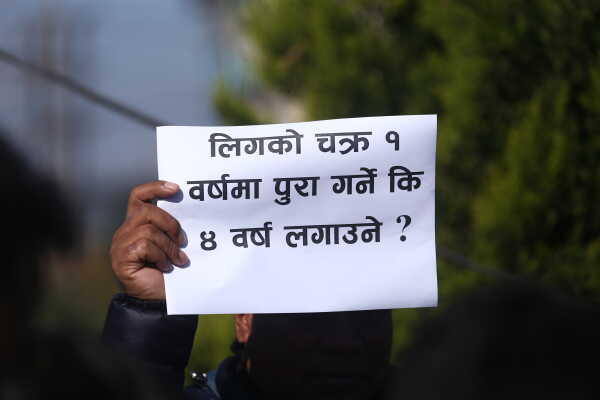 लिगको चक्र १
वर्षमा पुरा गर्ने कि
४ वर्ष लगाउने ?